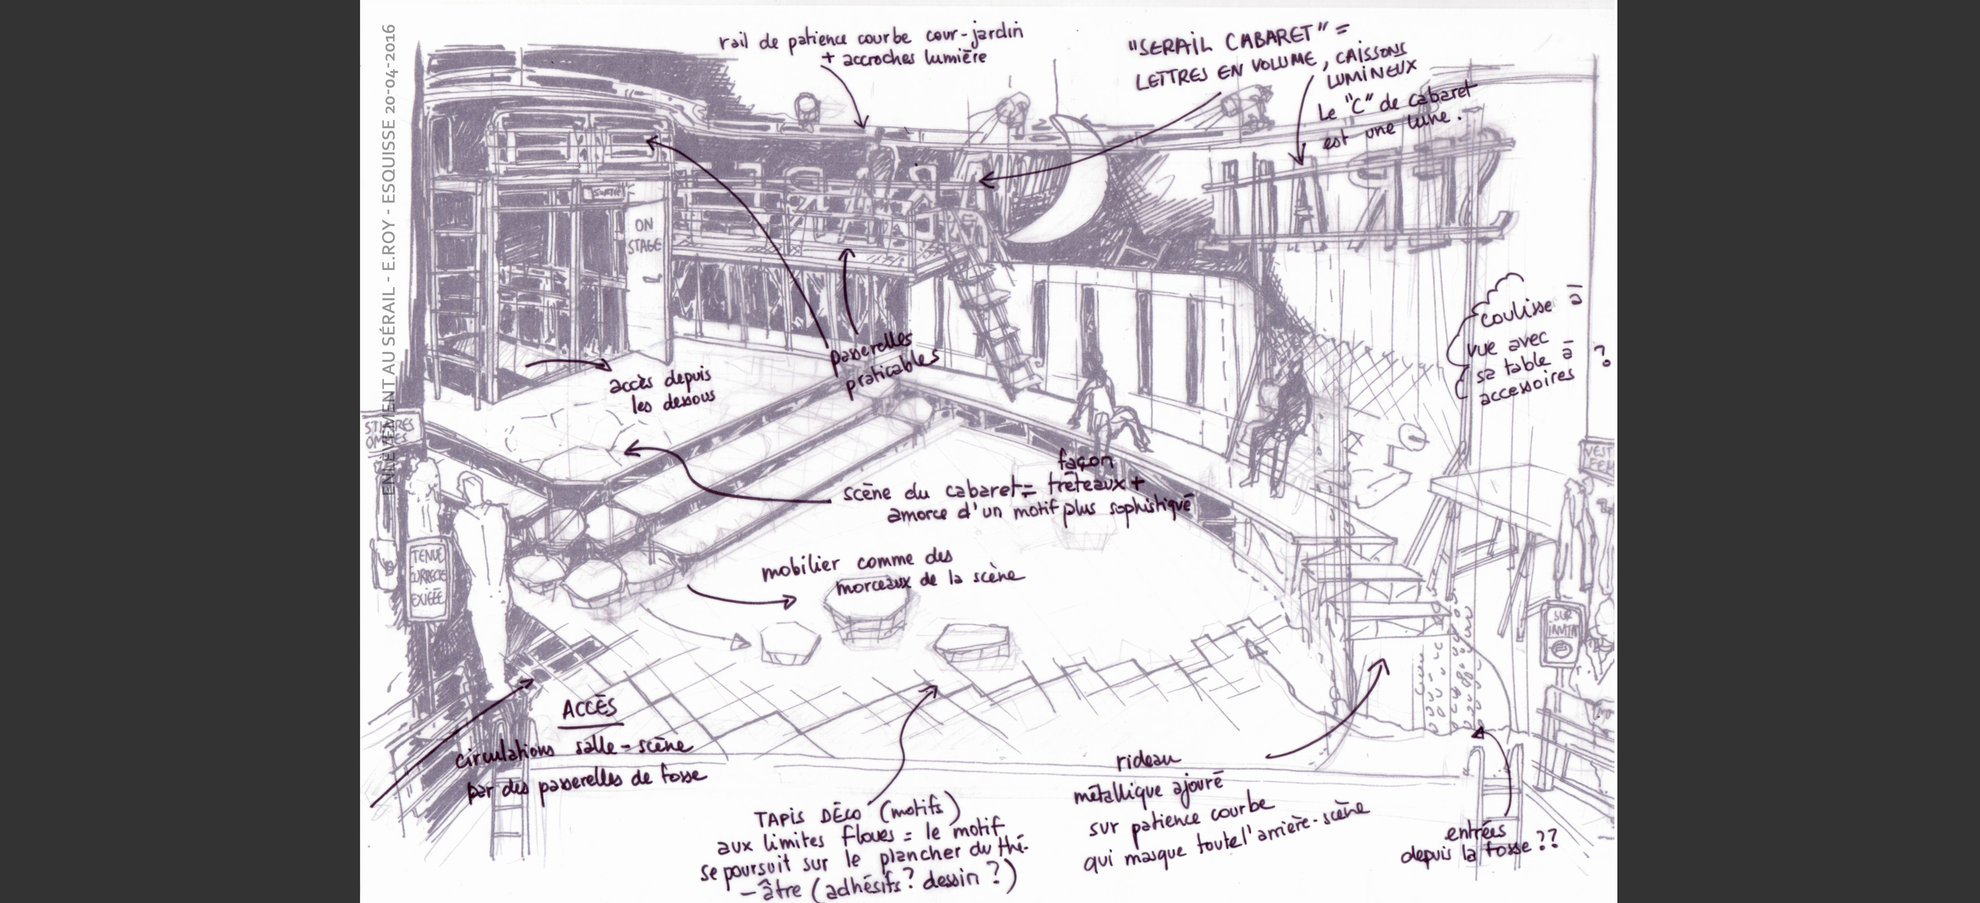 ENLÈVEMENT AU SÉRAIL - E.ROY - ESQUISSE 20-04-2016
rail de patience courbe cour-jardin
+ accroches lumière
"SERAIL CABARET" =
LETTRES EN VOLUME, CAISSONS
LUMINEUX
Le "C" de cabaret
est une lune.
SERAIL
SORTIE
ON
STAGE
coulisse à
vue avec
sa table à
accessoires
?
passerelles
praticables
accès depuis
les dessous
scène du cabaret = façon
tréteaux +
amorce d'un motif plus sophistiqué
mobilier comme des
morceaux de la scène
TENUE
CORRECTE
EXIGÉE
VEST
FEM
SUR
ACCÈS
circulations salle-scène
par des passerelles de fosse
TAPIS DÉCO (motifs)
aux limites floues = le motif
se poursuit sur le plancher du thé-
-âtre (adhésifs? dessin?)
rideau
métallique ajouré
sur patience courbe
qui masque toute l'arrière-scène
entrées
depuis la fosse ??